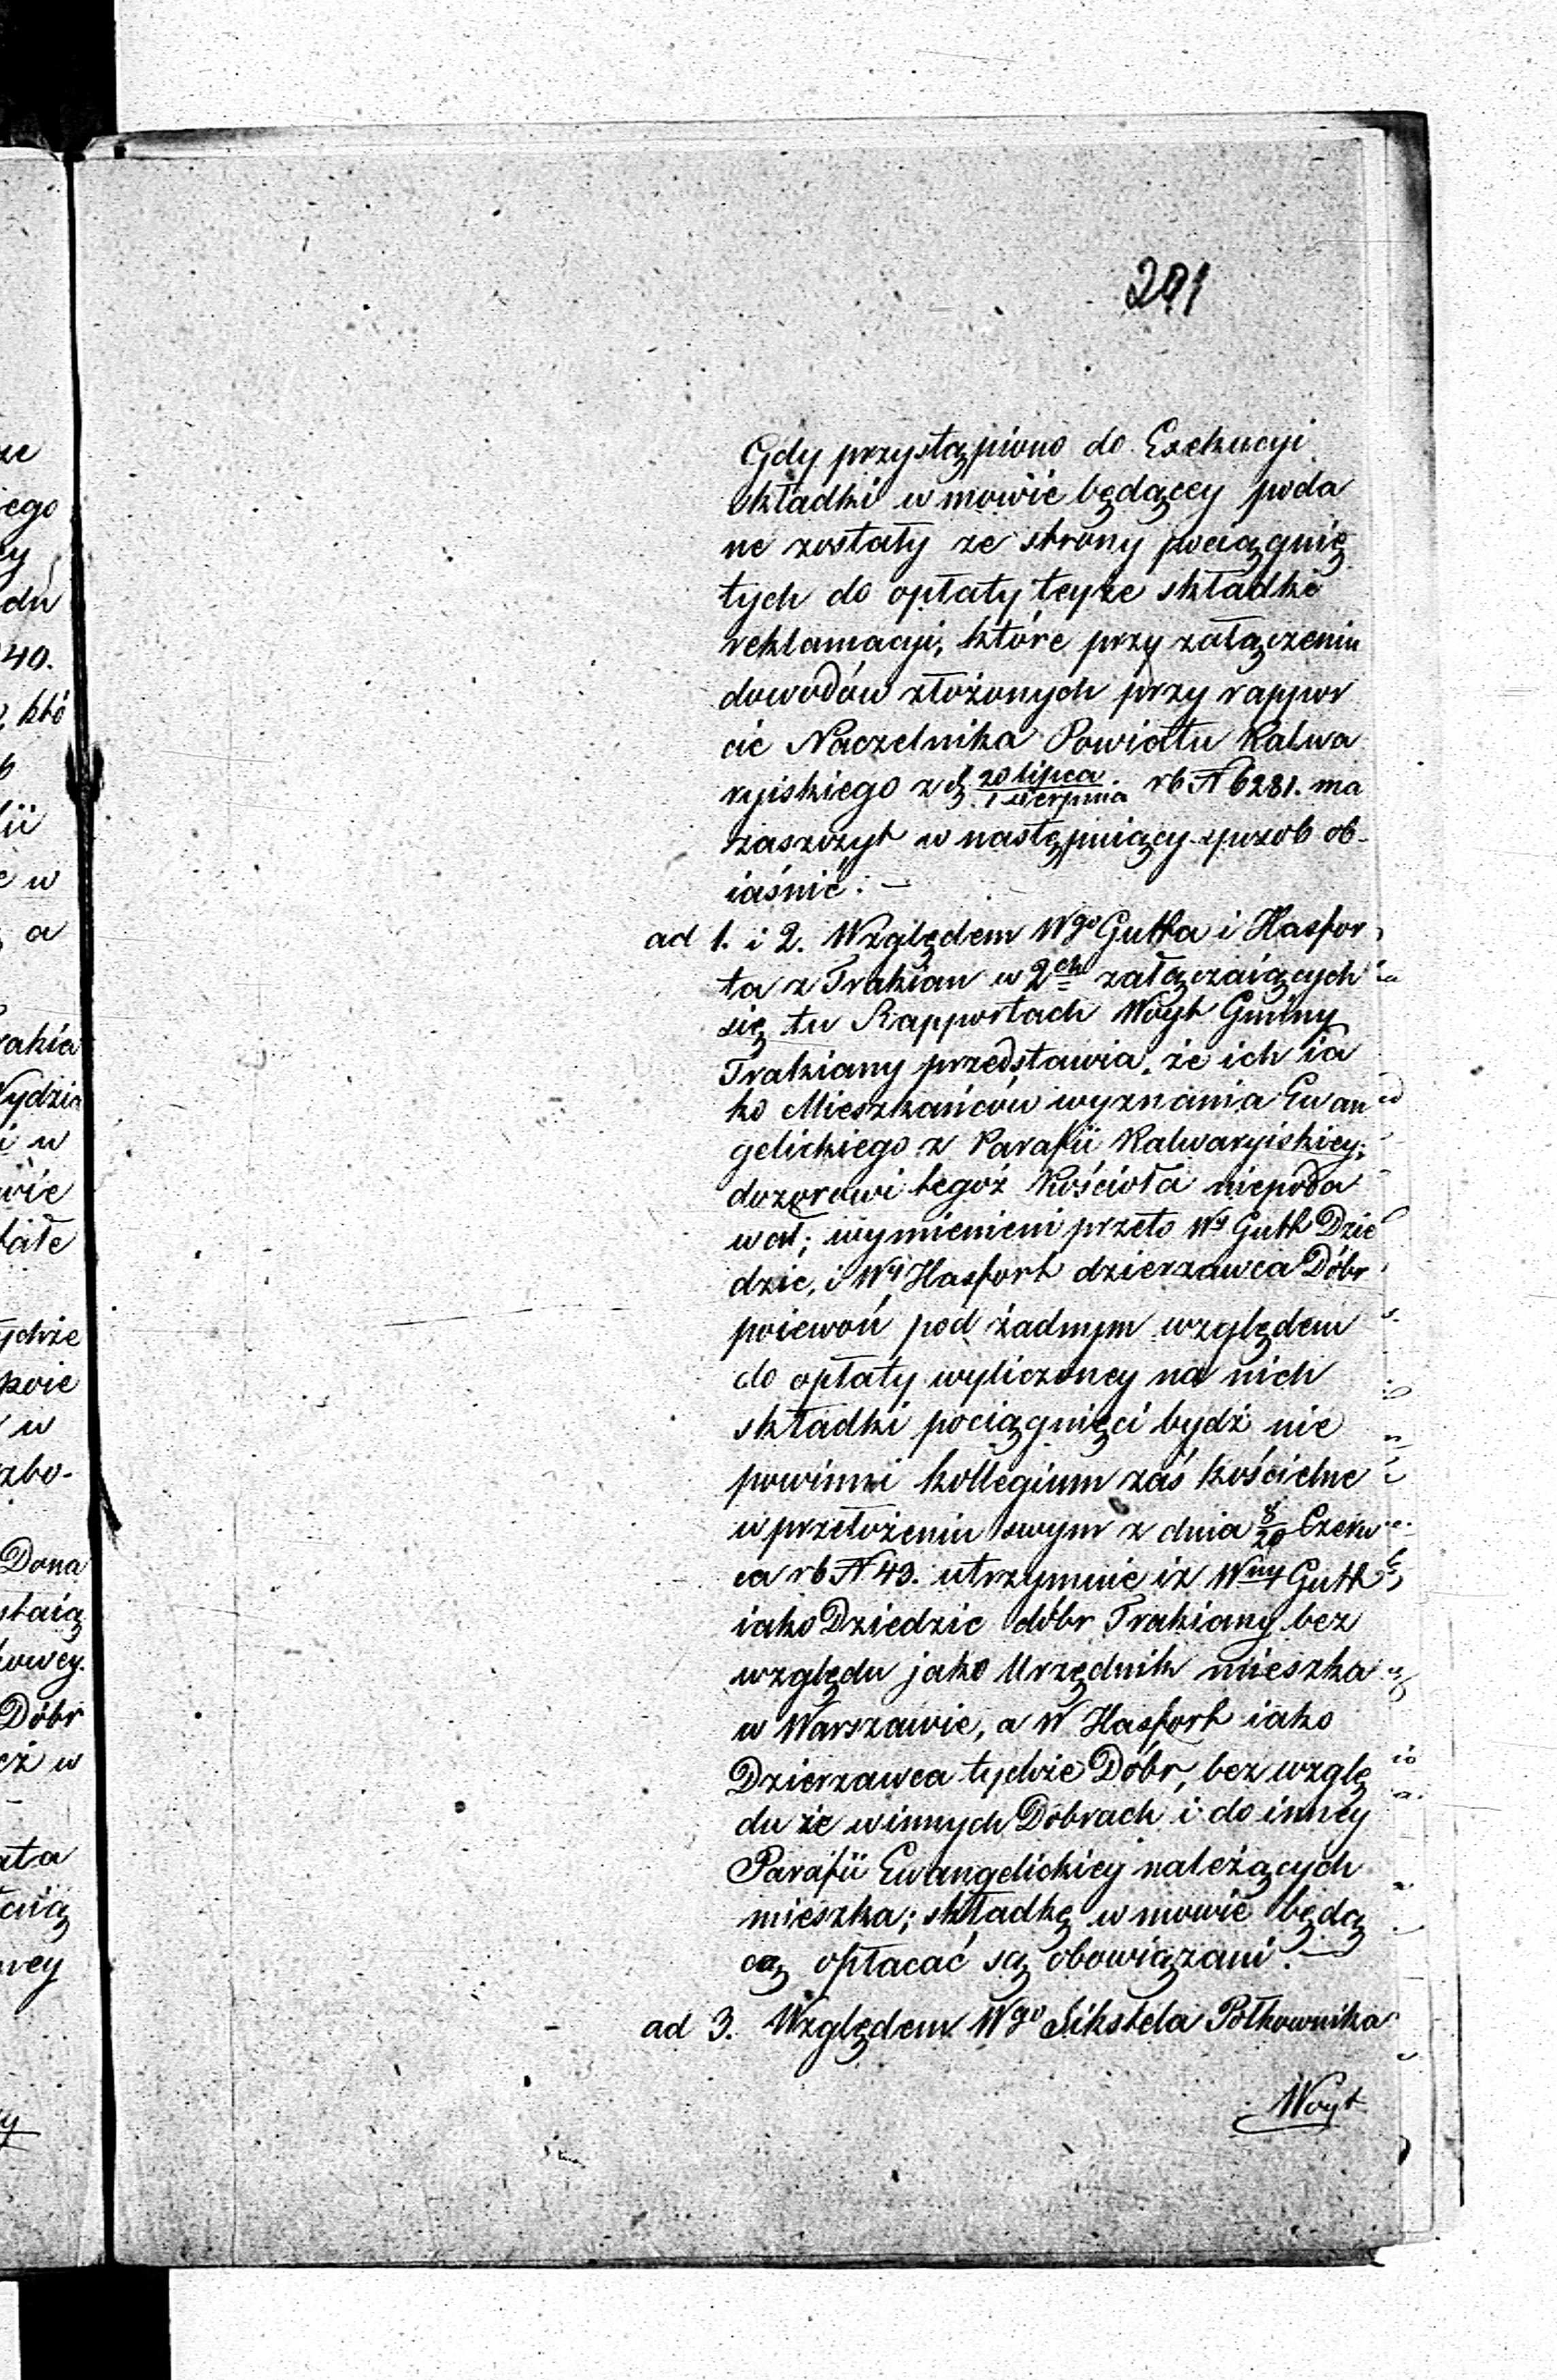 291
Gdy przystąpiono do Exekucyi
składki w mowie będącey poda
ne zostały ze strony pociągnię
tych do opłaty teyże składki
reklamacyi, które przy załączeniu
dowodów złożonych przy rappor
cie Naczelnika Powiatu Kalwa
ryiskiego z d. 20 lipca / 1 Sierpnia rb N 6281. ma
zaszczyt w następuiący sposob ob-
iaśnić: —
ad 1. i 2. Względem Wgo Gutta i Hasfor
ta z Trakian w 2ch załączaiących
się tu Rapportach Woyt Gminy
Trakiany przedstawia, że ich ia
ko Mieszkańców wyznania Ewan
gelickiego z Parafii Kalwaryiskiey
dozorowi tegoż Kościoła niepoda
wał; wymienieni przeto Wy Gutt Dzie
dzic, i Wy Hasfort dzierzawca Dóbr
poiewoń pod żadnym względem
do opłaty wyliczoney na nich
składki pociągnięci bydź nie
powinni kollegium zaś kościelne
w przełożeniu swym z dnia 8/20 Czerw
ca rb N 43. utrzymuie iz Wny Gutt
iako Dziedzic dóbr Trakiany bez
względu jako Urzędnik mieszka
w Warszawie, a W Hasfort iako
Dzierzawca tychże Dóbr, bez wzglę
du że w innych Dobrach i do inney
Parafii Ewangelickiey należących
mieszka; składkę w mowie będą
cą opłacać są obowiązani. —
ad 3. Względem Wgo Sikstela Połkownika
Woyt
ego
ey
du
40.
któ
w
a
i w
Dona
staią
Dóbr